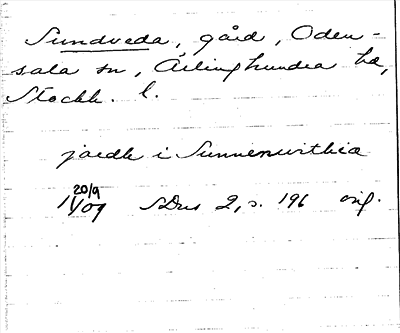 Sundveda, gård, Oden-
sala sn, Ärlinghundra hd,
Stockh. l.
jordh i Sunnerwithia
20/9
1409 SDns 2, s. 196 orig.